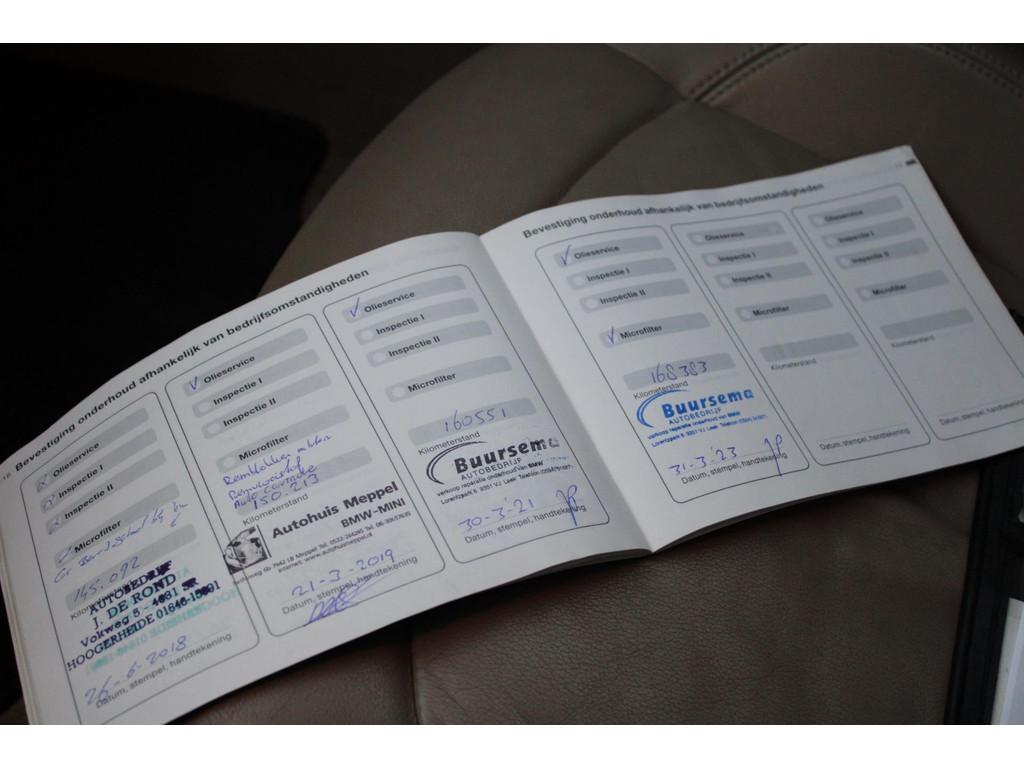 16 Bevestiging onderhoud afhankelijk van bedrijfsomstandigheden
Olieservice
Inspectie I
Inspectie II
Microfilter
145.092
AUTOBEDRIJF
J. DE ROND
Vokweg 5 - 4631 SR
HOOGERHEIDE
26-6-2018
Datum, stempel, handtekening
Olieservice
Inspectie I
Inspectie II
Microfilter
Remvloeistof
150.213
Kilometerstand
Autohuis Meppel
BMW-MINI
21-3-2019
Datum, stempel, handtekening
Olieservice
Inspectie I
Inspectie II
Microfilter
160551
Kilometerstand
Buursema
AUTOBEDRIJF
verkoop reparatie onderhoud van BMW
30-3-'21
Datum, stempel, handtekening
Bevestiging onderhoud afhankelijk van bedrijfsomstandigheden
Olieservice
Inspectie I
Inspectie II
Microfilter
168383
Kilometerstand
Buursema
AUTOBEDRIJF
verkoop reparatie onderhoud van BMW
31-3-'23
Datum, stempel, handtekening
Olieservice
Inspectie I
Inspectie II
Microfilter
Kilometerstand
Datum, stempel, handtekening
Olieservice
Inspectie I
Inspectie II
Microfilter
Kilometerstand
Datum, stempel, handtekening